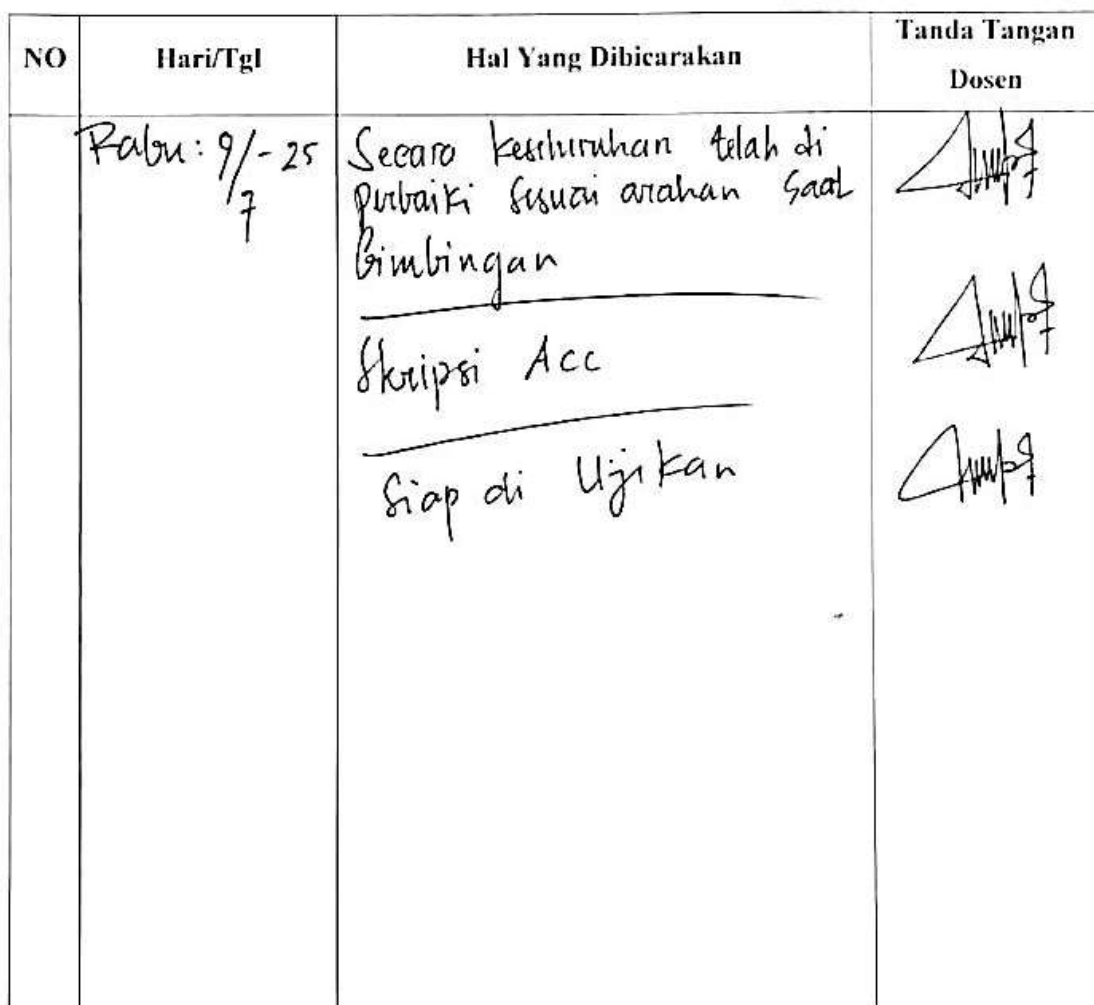 NO Hari/Tgl Hal Yang Dibicarakan Tanda Tangan Dosen
Rabu: 9/7 - 25
Secara keseluruhan telah di
perbaiki sesuai arahan saat
Bimbingan
Skripsi Acc
Siap di Ujikan